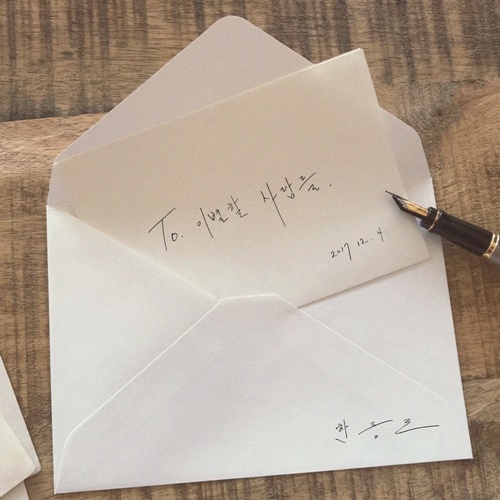 To. 이별할 사람들.
2017. 12. 4
한동근